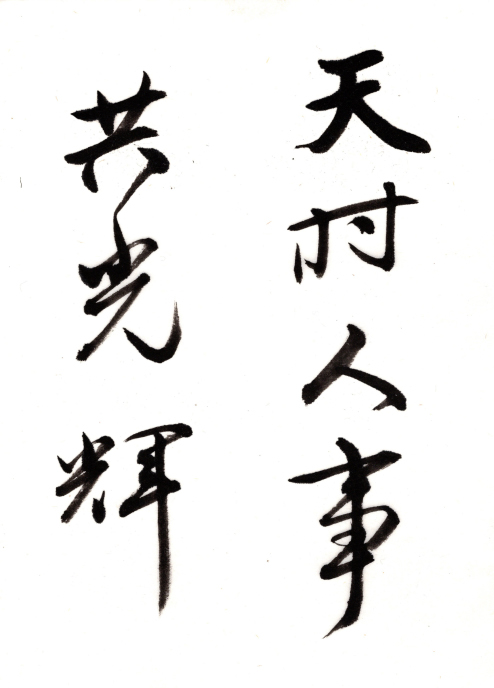 天时人事
共光辉